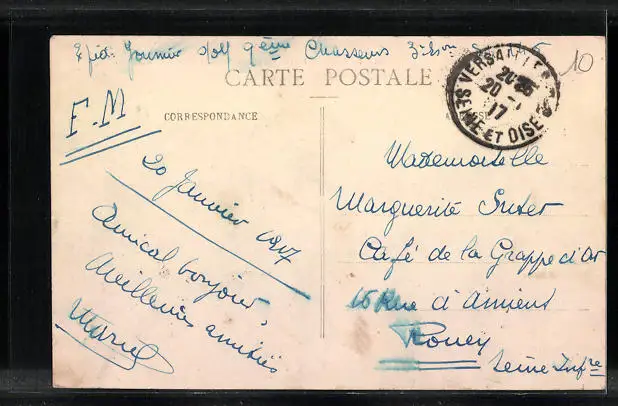 Expéd: Fournier 9ème Chasseurs
CARTE POSTALE
10
F.M
CORRESPONDANCE
VERSAILLES
20
17
SEINE ET OISE
20 Janvier 1917
Amical bonjour,
Meilleures amitiés
Marcel
Mademoiselle
Marguerite Suter
Café de la Grappe d'Or
16 Rue d'Amiens
Rouen
Seine Infre